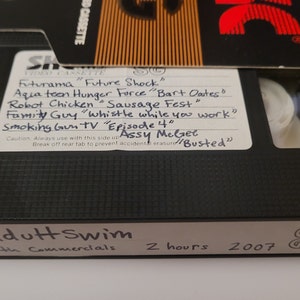 VIDEO CASSETTE
Futurama "Future Shock"
Aqua teen Hunger Force "Bart Oates"
Robot Chicken "Sausage Fest"
Family Guy "Whistle while you work"
Smoking Gun TV "Episode 4"
Assy McGee
"Busted"
Caution. Always use with this side up.
Break off rear tab to prevent accidental erasure
Adult Swim
Commercials 2 hours 2007